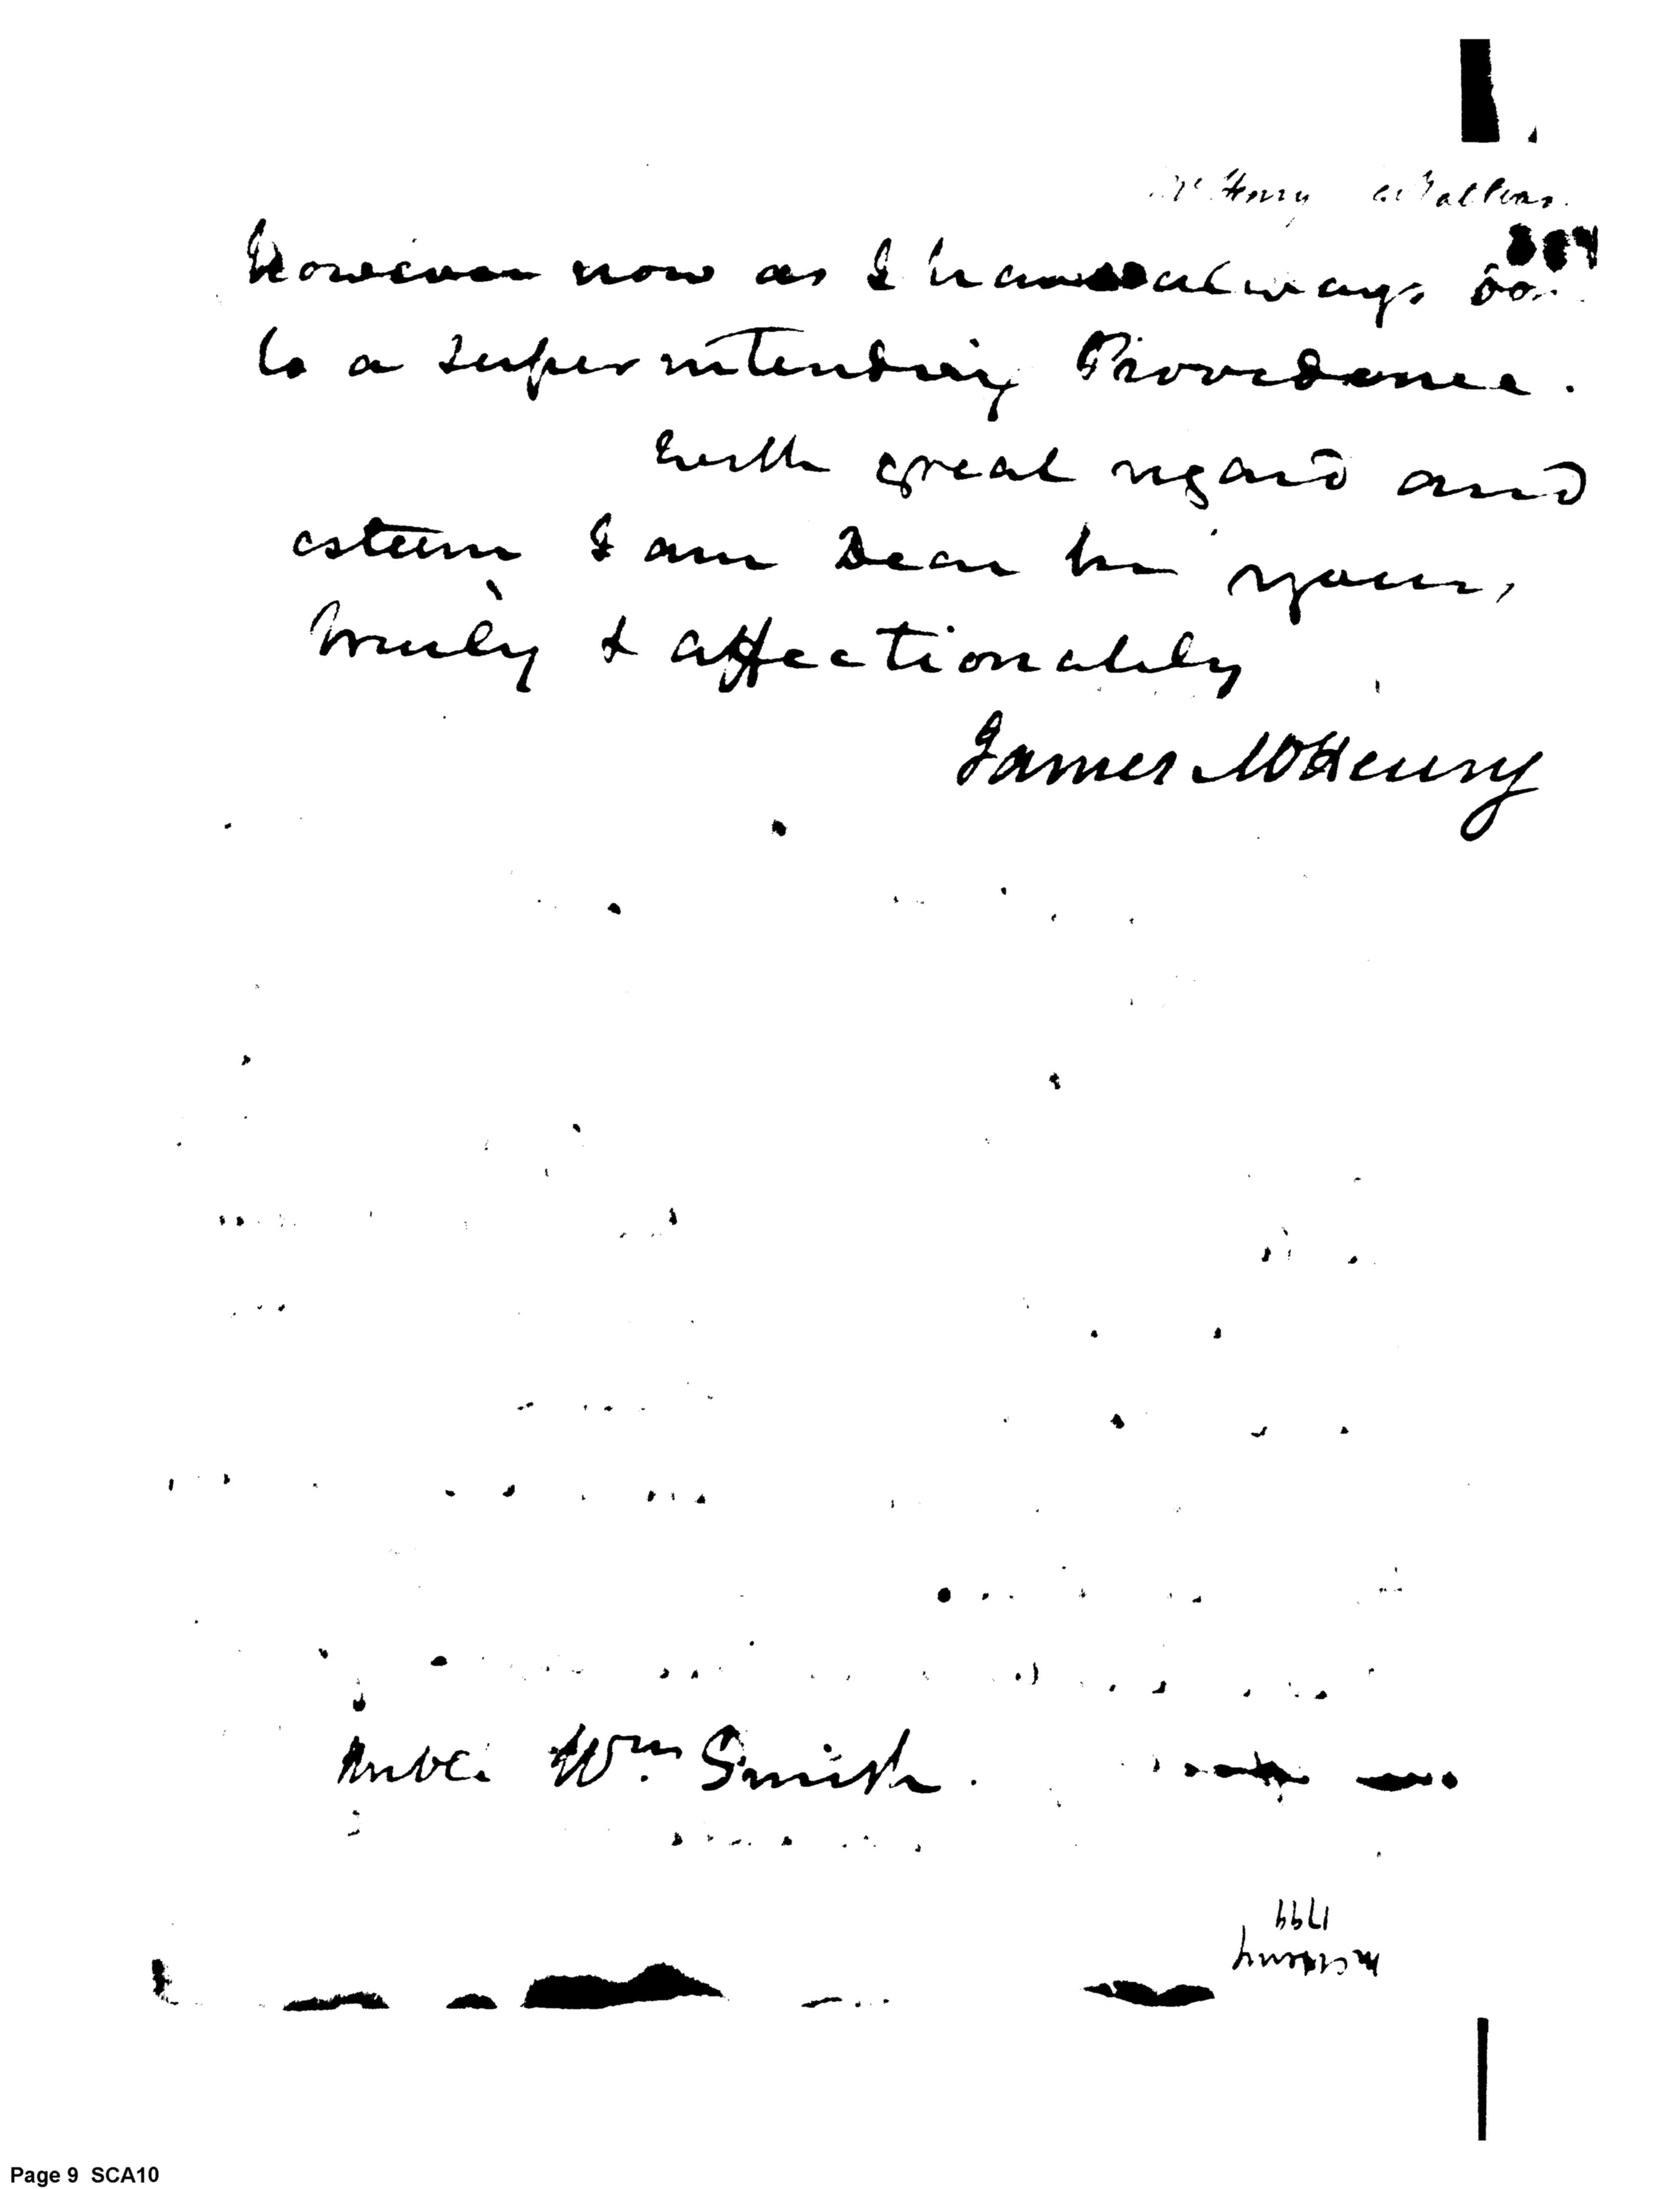 McHenry
however now as I have always
to a superintending Providence.
with great regard and
esteem I am Dear Sir yours,
truly & affectionately
James McHenry
Wm. Smith.
1799
McHenry
Page 9 SCA10